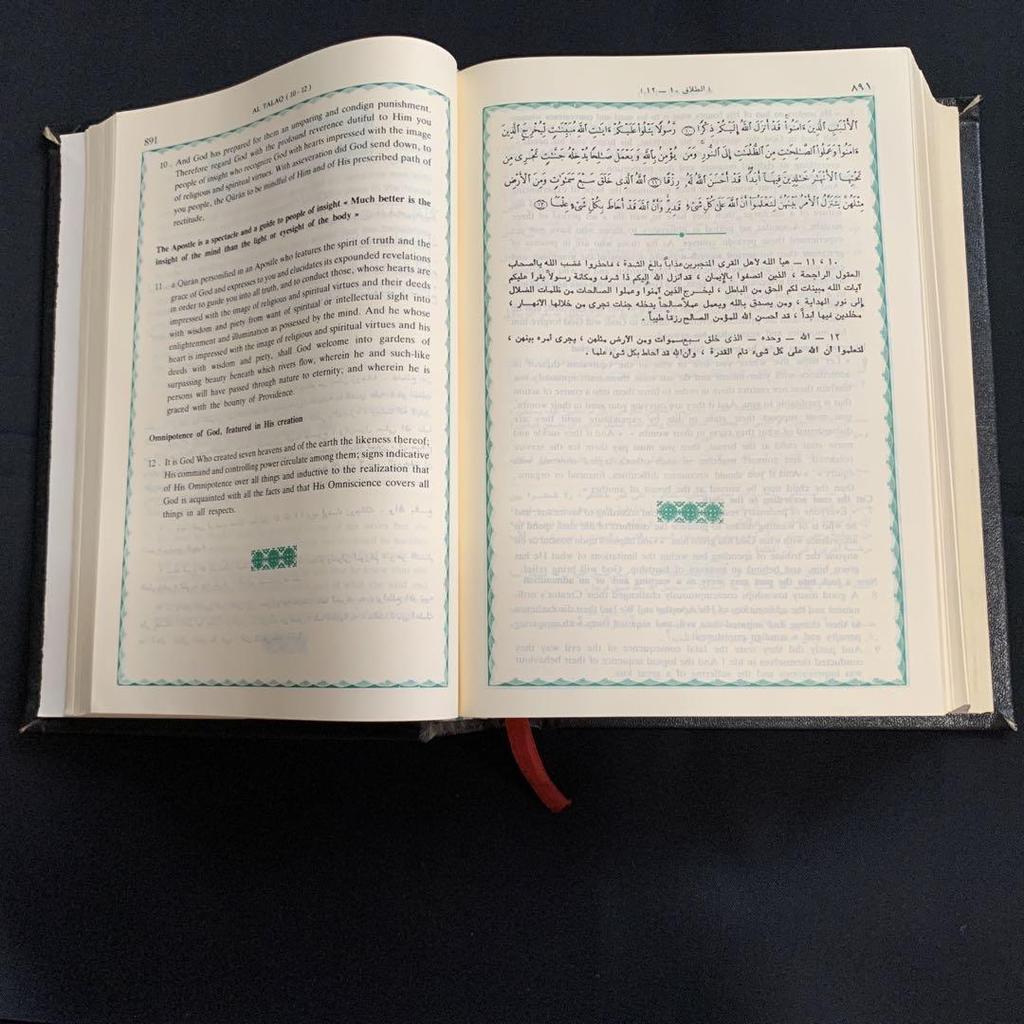 891
AL TALAQ ( 10 - 12 )
And God has prepared for them an unsparing and condign punishment.
10 . Therefore regard God with the profound reverence dutiful to Him you
people of insight who recognize God with hearts impressed with the image
of religious and spiritual virtues. With asseveration did God send down, to
you people, the Qūrān to be mindful of Him and of His prescribed path of
rectitude.
The Apostle is a spectacle and a guide to people of insight « Much better is the
insight of the mind than the light or eyesight of the body »
11 . a Qūran personified in an Apostle who features the spirit of truth and the
grace of God and expresses to you and elucidates its expounded revelations
in order to guide you into all truth, and to conduct those, whose hearts are
impressed with the image of religious and spiritual virtues and their deeds
with wisdom and piety from want of spiritual or intellectual sight into
enlightenment and illumination as possessed by the mind. And he whose
heart is impressed with the image of religious and spiritual virtues and his
deeds with wisdom and piety, shall God welcome into gardens of
surpassing beauty beneath which rivers flow, wherein he and such-like
persons will have passed through nature to eternity; and wherein he is
graced with the bounty of Providence.
Omnipotence of God, featured in His creation
12 . It is God Who created seven heavens and of the earth the likeness thereof;
His command and controlling power circulate among them; signs indicative
of His Omnipotence over all things and inductive to the realization that
God is acquainted with all the facts and that His Omniscience covers all
things in all respects.
٨٩١
( الطلاق ١٠ — ١٢ )
ٱلْأَلْبَٰبِ ٱلَّذِينَ ءَامَنُواْ قَدْ أَنزَلَ ٱللَّهُ إِلَيْكُمْ ذِكْرًا ١٠ رَّسُولًا يَتْلُواْ عَلَيْكُمْ ءَايَٰتِ ٱللَّهِ مُبَيِّنَٰتٍ لِّيُخْرِجَ ٱلَّذِينَ
ءَامَنُواْ وَعَمِلُواْ ٱلصَّٰلِحَٰتِ مِنَ ٱلظُّلُمَٰتِ إِلَى ٱلنُّورِ وَمَن يُؤْمِنۢ بِٱللَّهِ وَيَعْمَلْ صَٰلِحًا يُدْخِلْهُ جَنَّٰتٍ تَجْرِى مِن
تَحْتِهَا ٱلْأَنْهَٰرُ خَٰلِدِينَ فِيهَآ أَبَدًا قَدْ أَحْسَنَ ٱللَّهُ لَهُۥ رِزْقًا ١١ ٱللَّهُ ٱلَّذِى خَلَقَ سَبْعَ سَمَٰوَٰتٍ وَمِنَ ٱلْأَرْضِ
مِثْلَهُنَّ يَتَنَزَّلُ ٱلْأَمْرُ بَيْنَهُنَّ لِتَعْلَمُوٓاْ أَنَّ ٱللَّهَ عَلَىٰ كُلِّ شَىْءٍ قَدِيرٌ وَأَنَّ ٱللَّهَ قَدْ أَحَاطَ بِكُلِّ شَىْءٍ عِلْمًۢا ١٢
١٠ ، ١١ — هيأ الله لأهل القرى المتجبرين عذاباً بالغ الشدة ، فاحذروا غضب الله ياأصحاب
العقول الراجحة ، الذين اتصفوا بالإيمان ، قد أنزل الله إليكم ذا شرف ومكانة رسولاً يقرأ عليكم
آيات الله مبينات لكم الحق من الباطل ، ليخرج الذين آمنوا وعملوا الصالحات من ظلمات الضلال
إلى نور الهداية ، ومن يصدق بالله ويعمل عملا صالحاً يدخله جنات تجرى من خلالها الأنهار ،
مخلدين فيها أبداً ، قد أحسن الله للمؤمن الصالح رزقاً طيباً .
١٢ — الله — وحده — الذى خلق سبع سموات ومن الأرض مثلهن ، يجرى أمره بينهن ،
لتعلموا أن الله على كل شىء تام القدرة ، وأن الله قد أحاط بكل شىء علما .